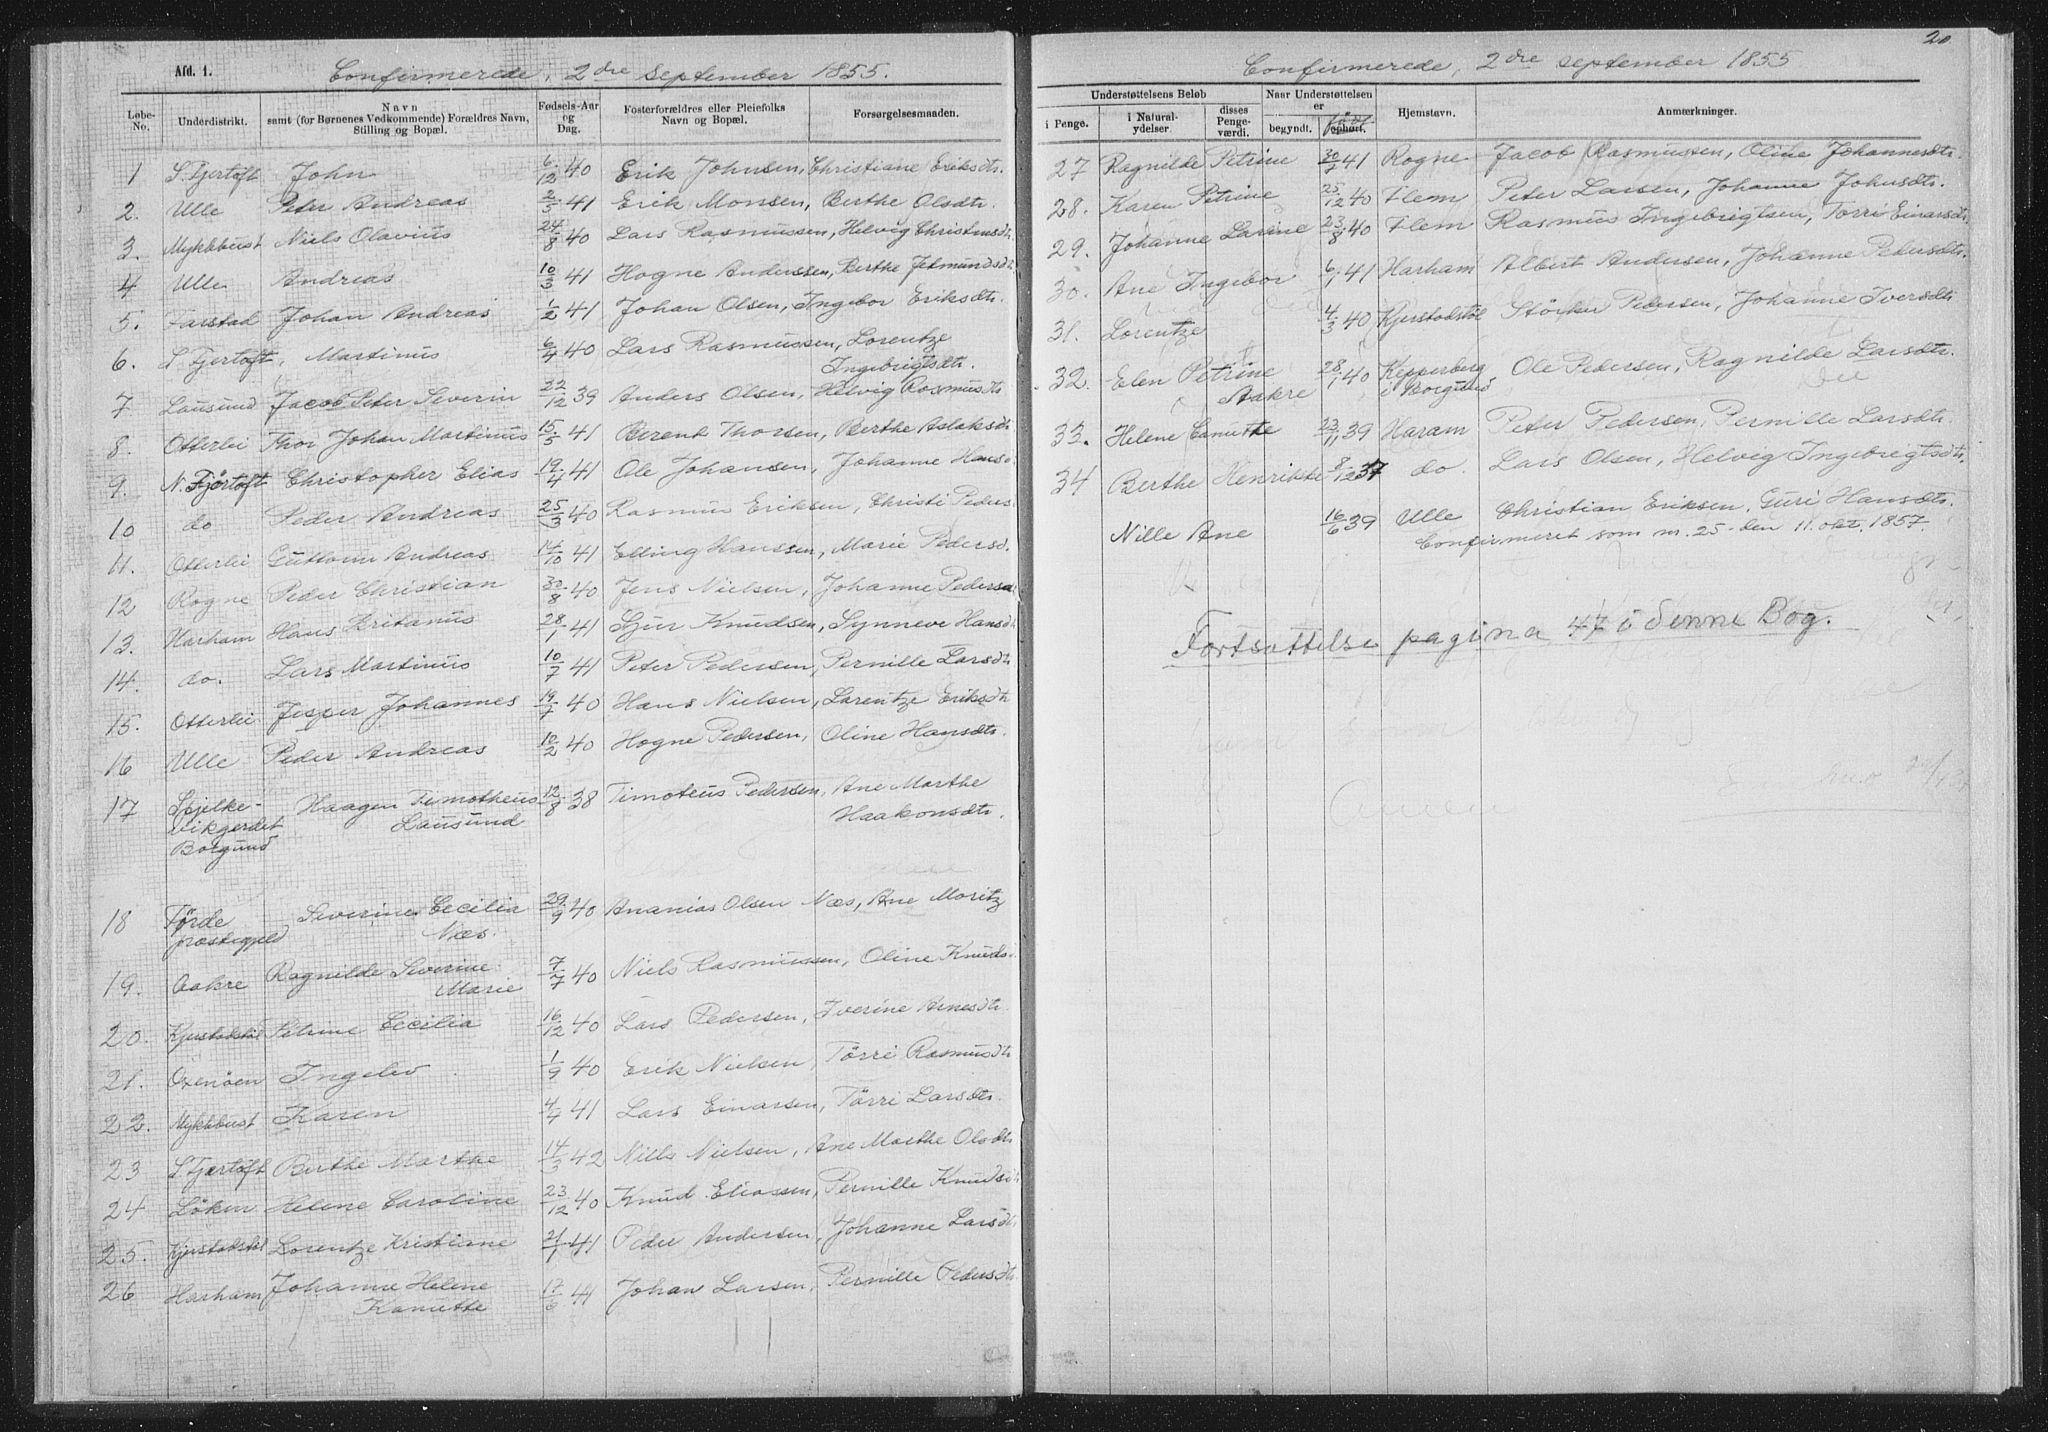 Afd. 1.
Confirmerede, 2dre september 1855.
Løbe-No. Underdistrikt. Navn samt (for Børnenes Vedkommende) Forældres Navn, Stilling og Bopæl. Fødsels-Aar og Dag. Fosterforældres eller Pleiefolks Navn og Bopæl. Forsørgelsesmaaden.
1 S. Fjertoft John 6/12 40 Erik Johnsen, Christiane Eriksdtr.
2. Ulle Peter Andreas 2/3 41 Erik Monsen, Berthe Olsdtr.
3. Mykkbust Niels Olavius 24/8 40 Lars Rasmussen, Helvig Christensdtr
4 Ulle Andreas 10/3 41 Hogne Anderssen, Berthe Jetmundsdtr
5. Farstad Johan Andreas 1/2 41 Johan Olsen, Ingebor Eriksdtr.
6. S Fjertoft, Martinus 6/4 40 Lars Rasmussen, Lorentze
Ingebrigtsdtr.
7 Lausund Jacob Peter Severin 22/12 39 Anders Olsen, Helvig Rasmusdtr
8. Otterlei Thor Johan Martinus 15/5 41 Berent Thorsen, Berthe Aslaksdtr
9. N. Fjørtoft Christopher Elias 19/4 41 Ole Johansen, Johanne Hansd
10 do Peder Andreas 25/3 40 Rasmus Eriksen, Christi Peders
11. Otterlei Guttorm Andreas 14/10 41 Elling Hanssen, Marie Pedersd.
12 Rogne Peder Christian 30/8 40 Jens Nielsen, Johanne Pedersd
13. Harham Hans Zritanus 28/1 41 Sjur Knudsen, Synneve Hansdtr
14. do. Lars Martinus 10/7 41 Peter Pedersen, Pernille Larsdtr
15. Otterlei Jesper Johannes 19/7 40 Hans Nielsen, Lorentze Eriksdtr
16 Ulle Peder Andreas 10/2 40 Hogne Pedersen, Oline Hansdtr.
17 Spjelke- Haagen Timotheus 12/8 38 Timoteus Pedersen, Ane Marthe
vikgerdet Lausund Haakonsdtr.
Borgund
18 Førde Severine Cecilia 29/9 40 Ananias Olsen Næs, Ane Moritz
præstegjeld Næs.
19. Aakre Ragnilde Severine 7/7 40 Niels Rasmussen, Oline Knuds
Marie
20. Kjerstadstøl Petrine Cecilia 16/12 40 Lars Pedersen, Iverine Arnesdtr.
21. Oxenöen Ingelev 1/9 40 Erik Nielsen, Törri Rasmusdtr
22. Mykkbust Karen 4/7 41 Lars Einarsen, Törri Larsdtr.
23 S Fjertoft Berthe Marthe 14/3 42 Niels Nielsen, Ane Marthe Olsdtr
24 Löken Helene Caroline 23/12 40 Knud Eliassen, Pernille Knudsdtr
25. Kjerstadstøl Lorentze Kristiane 21/1 41 Peder Andersen, Johanne Larsdtr
26 Harham Johanne Helene 17/6 41 Johan Larsen, Pernille Pedersdtr
Kanutte
20
Confirmerede, 2dre september 1855
Understøttelsens Beløb Naar Understøttelsen er Hjemstavn. Anmærkninger.
i Penge. i Natural-ydelser. disses Penge-værdi. begyndt. ophørt.
27 Ragnilde Petrine 30/7 41 Rogne Jacob Rasmussen, Oline Johannesdtr.
28. Karen Petrine 25/12 40 Flem Peter Larsen, Johanne Johnsdtr.
29. Johanne Larine 23/8 40 Flem Rasmus Ingebrigtsen, Torri Einarsdtr
30. Ane Ingebor 6/1 41 Harham Albert Andersen, Johanne Pedersdtr.
31. Lorentze 4/3 40 Kjerstadstøl Störker Pedersen, Johanne Iversdtr
32. Elen Petrine 28/1 40 Kepperberg Ole Pedersen, Ragnilde Larsdtr.
Aakre i Borgund
33. Helene Canutte 23/11 39 Haram Peter Pedersen, Pernille Larsdtr
34 Berthe Henrikke 8/12 37 do. Lars Olsen, Helvig Ingebrigtsdtr.
Nille Ane 16/6 39 Ulle Christian Eriksen, Guri Hansdtr.
Confirmeret som nr. 25 den 11. okt. 1857.
Fortsættelse pagina 47 i denne Bog.